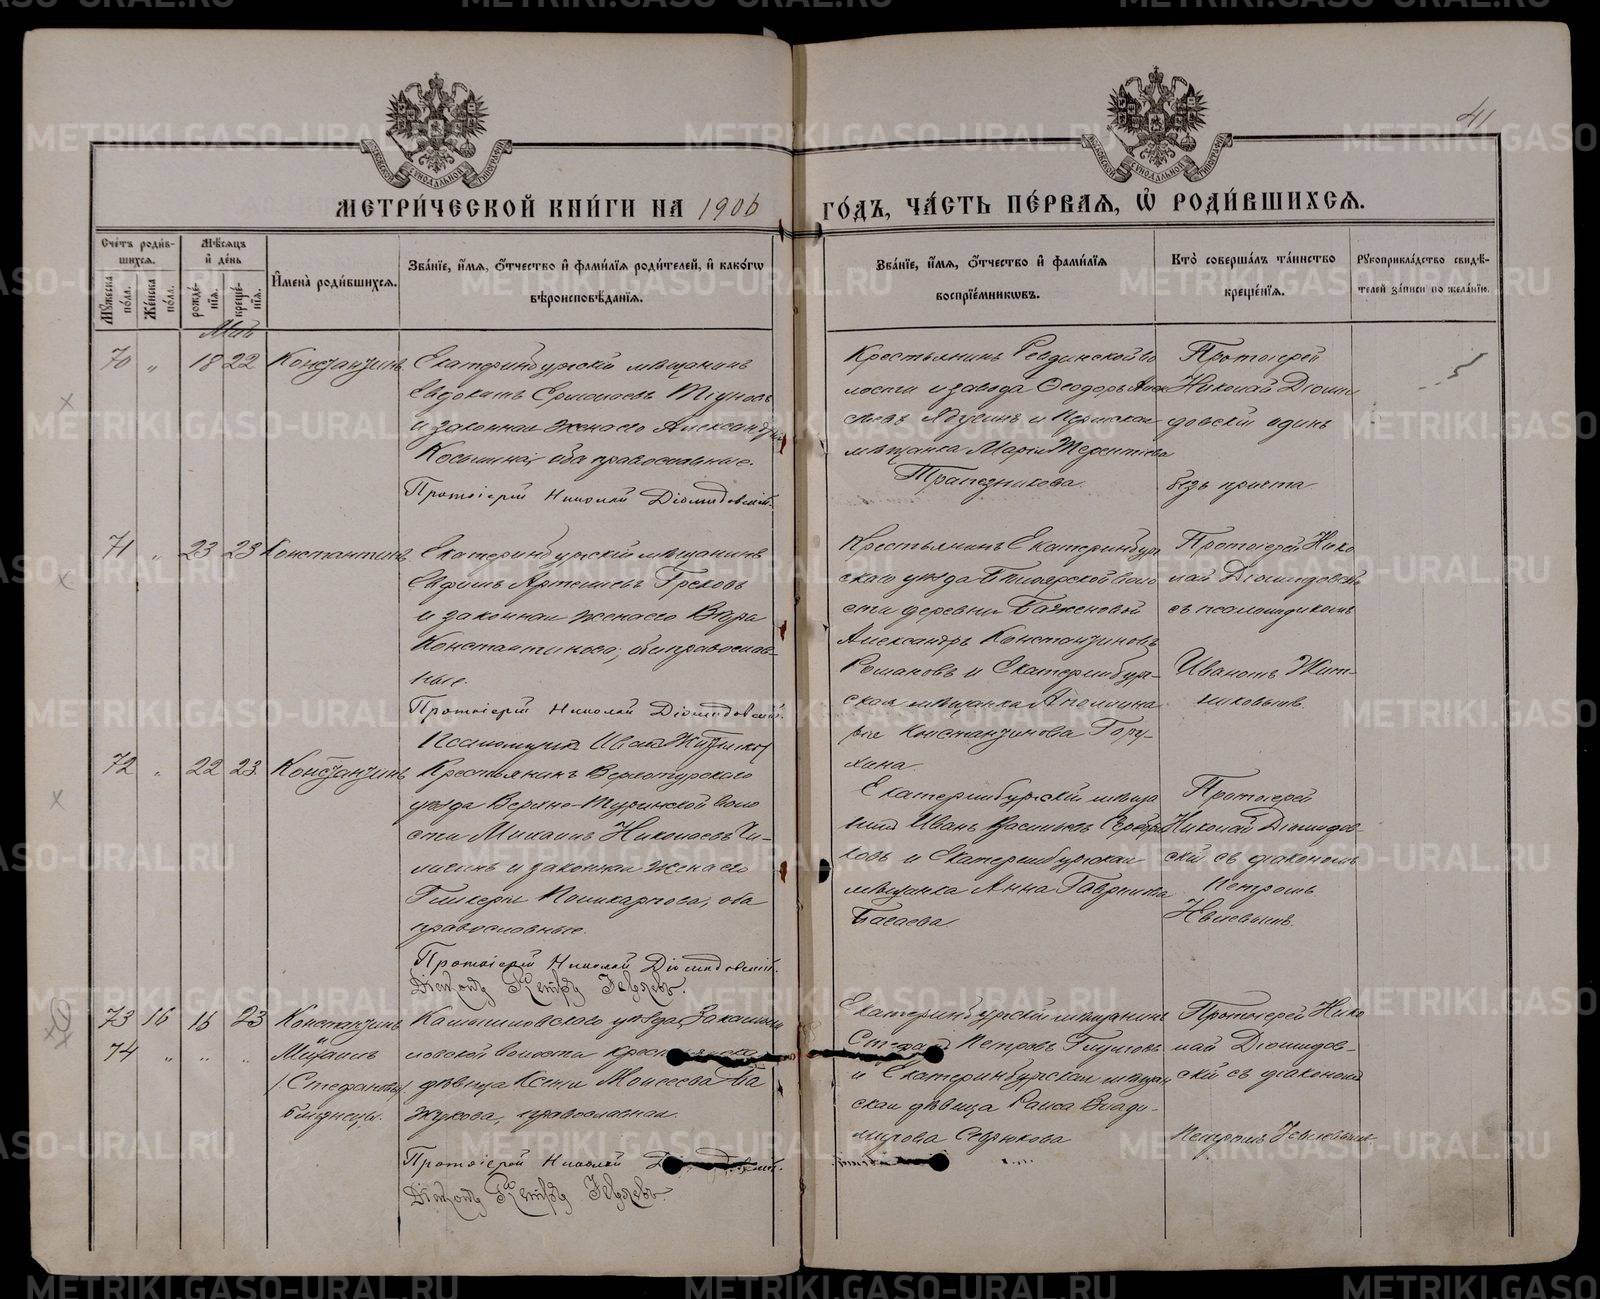 41
МЕТРИ́ЧЕСКОЙ КНИ́ГИ НА 1906 ГО́ДЪ, ЧА́СТЬ ПЕ́РВАЯ, Ѡ҆ РОДИ́ВШИХСЯ.
Сче́тъ роди́в-
шихся.
Мꙋ́жеска по́ла.
Же́нска по́ла.
Мѣ́сяцъ
и҆ де́нь
рожде́-
нїя.
креще́-
нїя.
И҆мена̀ роди́вшихся.
Зва́нїе, и҆́мя, ѻ҆́тчество и҆ фами́лїя роди́телей, и҆ како́гѡ
вѣроисповѣ́данїя.
Зва́нїе, и҆́мя, ѻ҆́тчество и҆ фами́лїя
воспрїе́мникѡвъ.
Кто̀ соверша́лъ та́инство
креще́нїя.
Рꙋкоприкла́дство свидѣ́-
телей за́писи по жела́нїю.
Май
70 „ 18 22 Константинъ
Екатеринбургскій мѣщанинъ
Евдокимъ Ермолаевъ
и законная жена его Александра
Косьмина, оба православные.
Протоіерей Николай Діомидовскій.
Крестьянинъ Ревдинской во
лости и завода Ѳеодоръ
и Пермская
мѣщанка Марія Терентьева
Трапезникова.
Протоіерей
Николай Діоми
довскій одинъ
безъ причта
71 „ 23 23 Константинъ
Екатеринбургскій мѣщанинъ
Ефимъ Артемьевъ Грековъ
и законная жена его Вѣра
Константинова, оба православ-
ные.
Протоіерей Николай Діомидовскій.
Псаломщикъ Иванъ Житниковъ
Крестьянинъ Екатеринбург
скаго уѣзда Бѣлоярской воло
сти деревни Баженовой
Александръ Константиновъ
Романовъ и Екатеринбург-
ская мѣщанка Аполлина
рія Константинова Гору-
хина.
Протоіерей Нико
лай Діомидовскій
съ псаломщикомъ
Иваномъ Жит-
никовымъ.
72 „ 22 23 Константинъ
Крестьянинъ Верхотурскаго
уѣзда Верхне-Туринской воло
сти Михаилъ Николаевъ
и законная жена его
Гликерія Поликарпова, оба
православные.
Протоіерей Николай Діомидовскій.
Діаконъ Петръ Іевлевъ.
Екатеринбургскій мѣща
нинъ Иванъ Васильевъ Серебря
ковъ и Екатеринбургская
мѣщанка Анна Гаврилова
Багаева
Протоіерей
Николай Діомидов-
скій съ діакономъ
Петромъ
Іевлевымъ.
73 16 16 23 Константинъ
74 „ „ „ Михаилъ
(Стефановы)
близнецы.
Камышловскаго уѣзда, Закамыш
ловской волости крестьянская
дѣвица Ксенія Моисеева Ба
жукова, православная.
Протоіерей Николай Діомидовскій.
Діаконъ Петръ Іевлевъ.
Екатеринбургскій мѣщанинъ
Стефанъ Петровъ
и Екатеринбургская мѣщан
ская дѣвица Раиса Влади-
мірова Сѣдюкова
Протоіерей Нико
лай Діомидов-
скій съ діакономъ
Петромъ Іевлевымъ.
METRIKI.GASO-URAL.RU